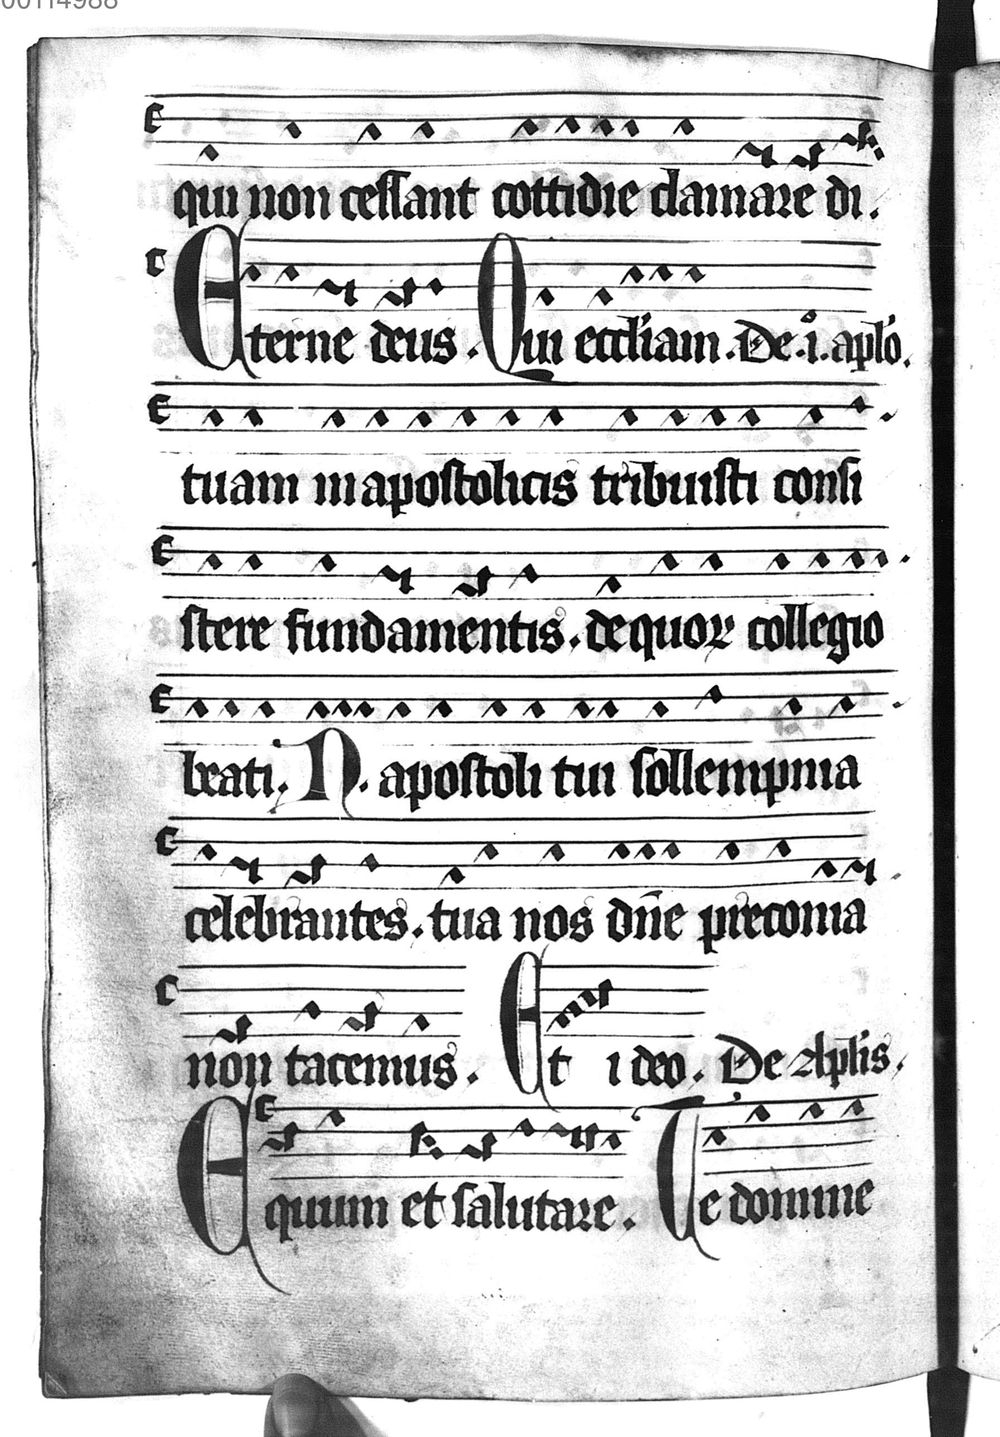 00114988
qui non cessant cottidie clamare di.
Eterne deus. Qui eccliam. De. i. aplo.
tuam in apostolicis tribuisti consi
stere fundamentis. de quoꝝ collegio
beati. N. apostoli tui sollempnia
celebrantes. tua nos dn̄e preconia
non tacemus. Et ideo. De aplis.
Equum et salutare. Te domine